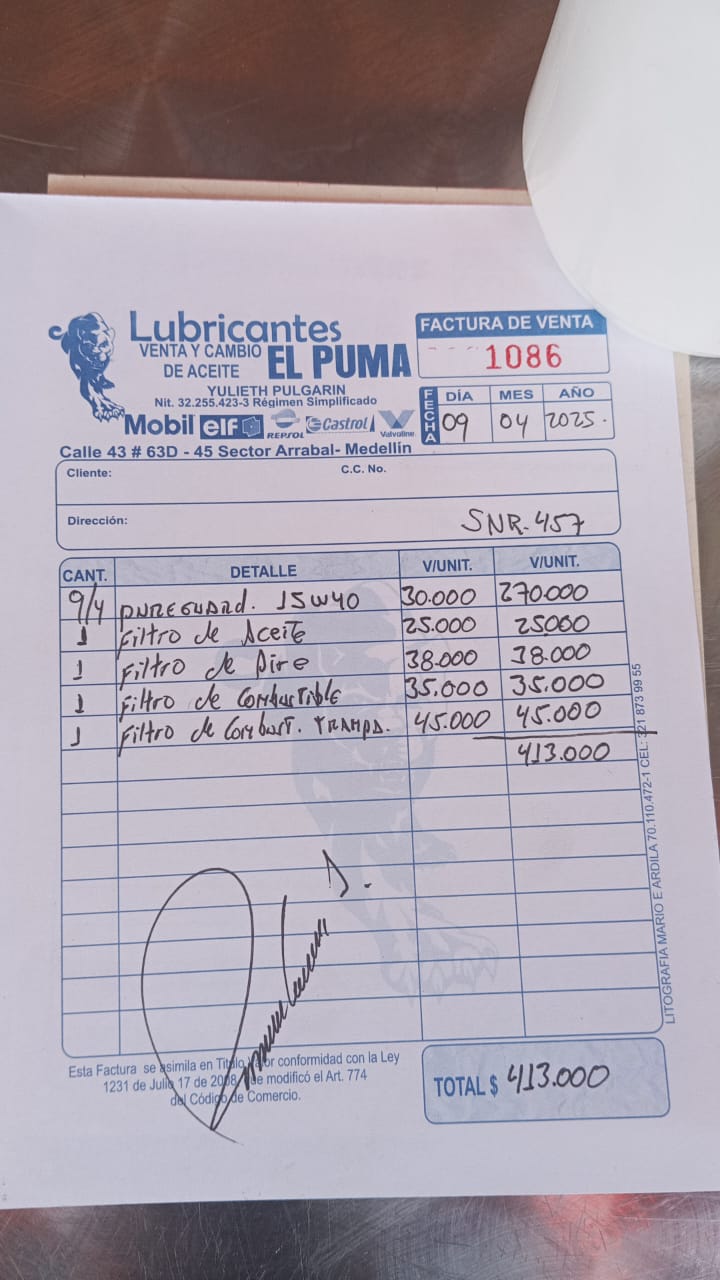 Lubricantes
VENTA Y CAMBIO
DE ACEITE
EL PUMA
YULIETH PULGARIN
Nit. 32.255.423-3 Régimen Simplificado
Mobil elf REPSOL Castrol Valvoline
Calle 43 # 63D - 45 Sector Arrabal- Medellín
FACTURA DE VENTA
1086
FECHA
DÍA MES AÑO
09 04 2025.
Cliente: C.C. No.
Dirección: SNR. 457
CANT. DETALLE V/UNIT. V/UNIT.
9/4 PUREGUARD. 15W40 30.000 270.000
1 Filtro de Aceite 25.000 25000
1 Filtro de Aire 38.000 38.000
1 Filtro de Combustible 35.000 35.000
1 Filtro de Combust. TRAMPA. 45.000 45.000
413.000
Esta Factura se asimila en Titulo Valor conformidad con la Ley
1231 de Julio 17 de 2008, que modificó el Art. 774
del Código de Comercio.
TOTAL $ 413.000
LITOGRAFIA MARIO E ARDILA 70.110.472-1 CEL: 321 873 99 55